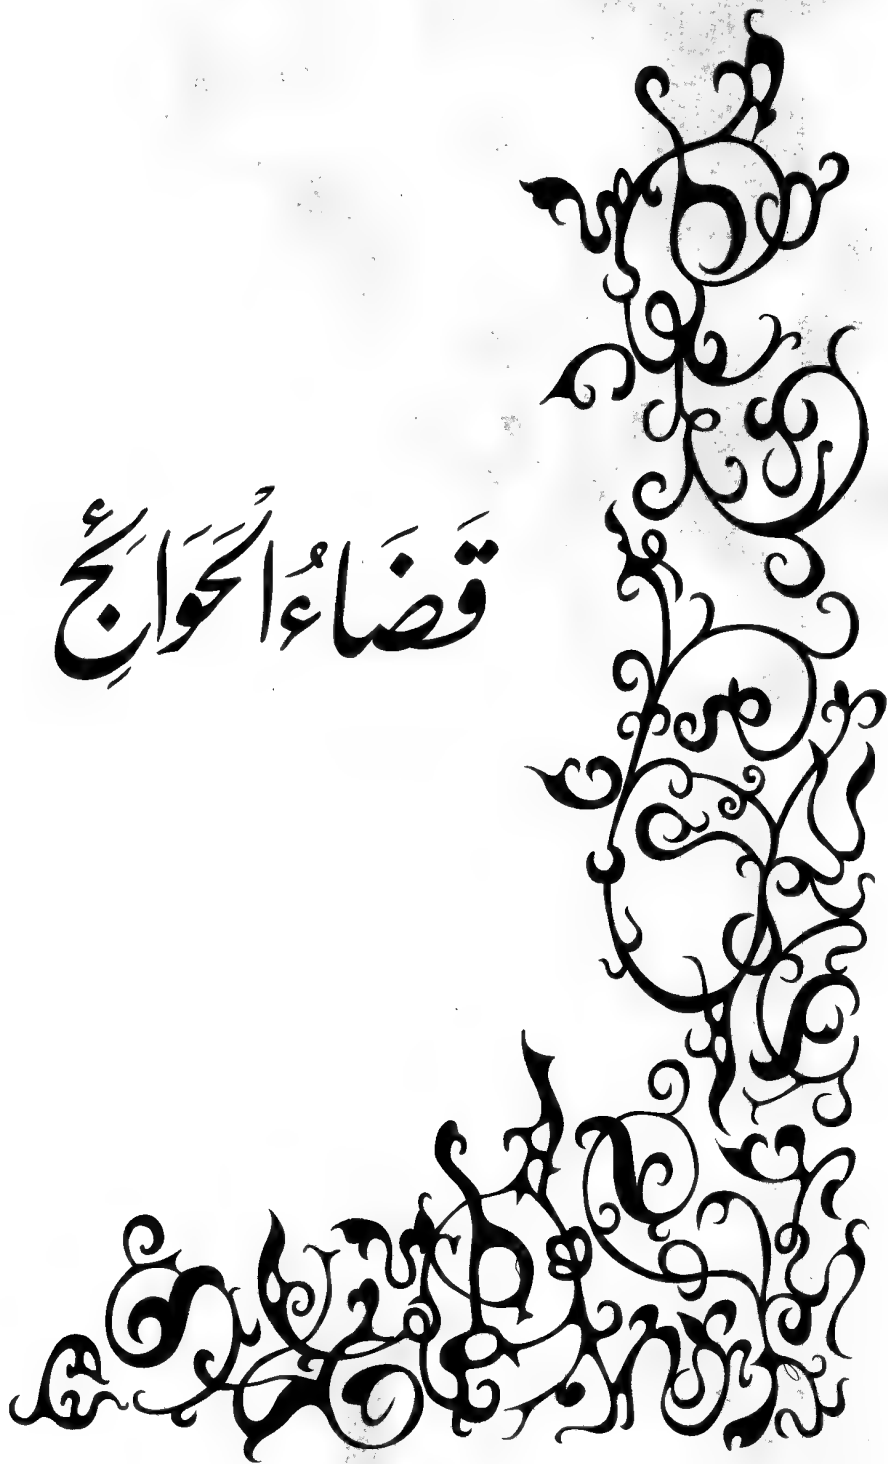 قَضَاءُ الْحَوَائِجِ